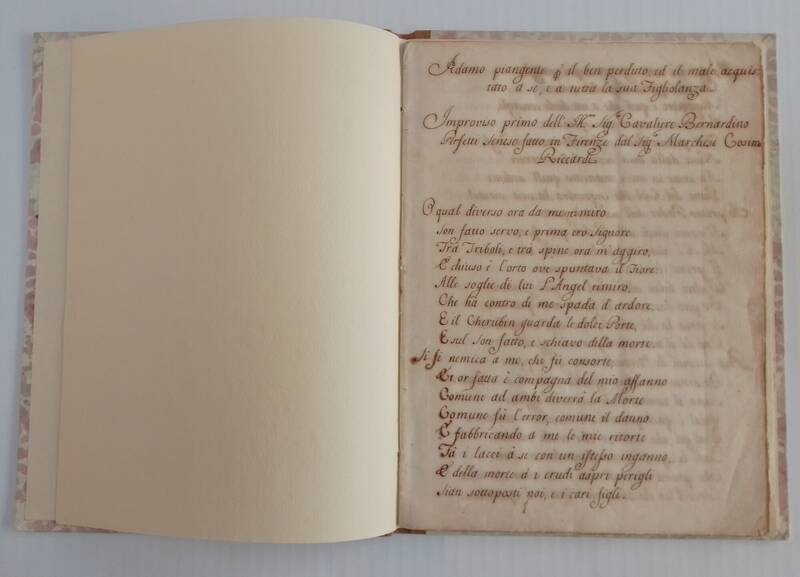 Adamo piangente p il ben perduto, ed il male acquis
tato à se, e à tutta la sua Figliolanza.
Improviso primo dell' Sig.e Cavaliere Bernardino
Perfetti Senese fatto in Firenze dal Sig.e Marchese Cosim
Riccardi
O qual diverso ora da me rimiro
Son fatto servo, e prima ero Signore
Trà Triboli, e trà spine ora m'aggiro,
E chiuso è l'orto ove spuntava il Fiore
Alle soglie di lui L'Angel rimiro,
Che hà contro di me spada d'ardore,
E il Cherubin guarda le dolci Porte,
Esul son fatto, e schiavo della morte.
Si fè nemica a me, chi fù consorte,
Et or fatta è compagna del mio affanno
Comune ad ambi diverrà la Morte
Comune fù l'error, comune il danno.
E fabbricando a me le mie ritorte
Fà i lacci à se con un istesso inganno,
E della morte a i crudi aspri perigli
Sian sottoposti noi, e i cari figli.